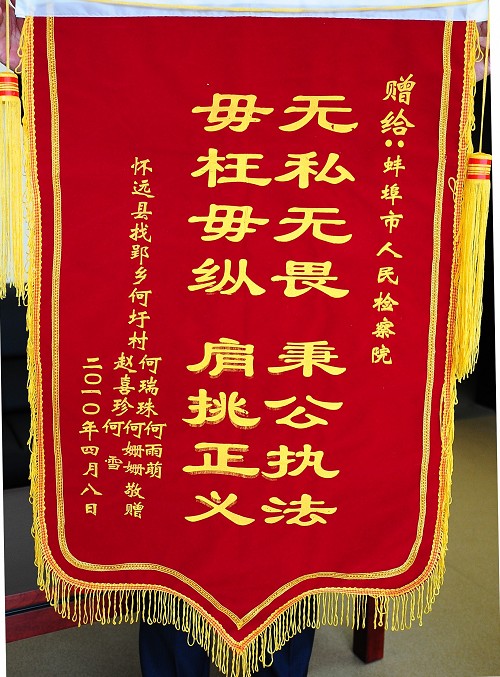 赠给：蚌埠市人民检察院
无私无畏 秉公执法
毋枉毋纵 肩挑正义
怀远县找郢乡何圩村
何瑞珠何雨萌
赵喜珍何姗姗敬赠
何雪
二〇一〇年四月八日